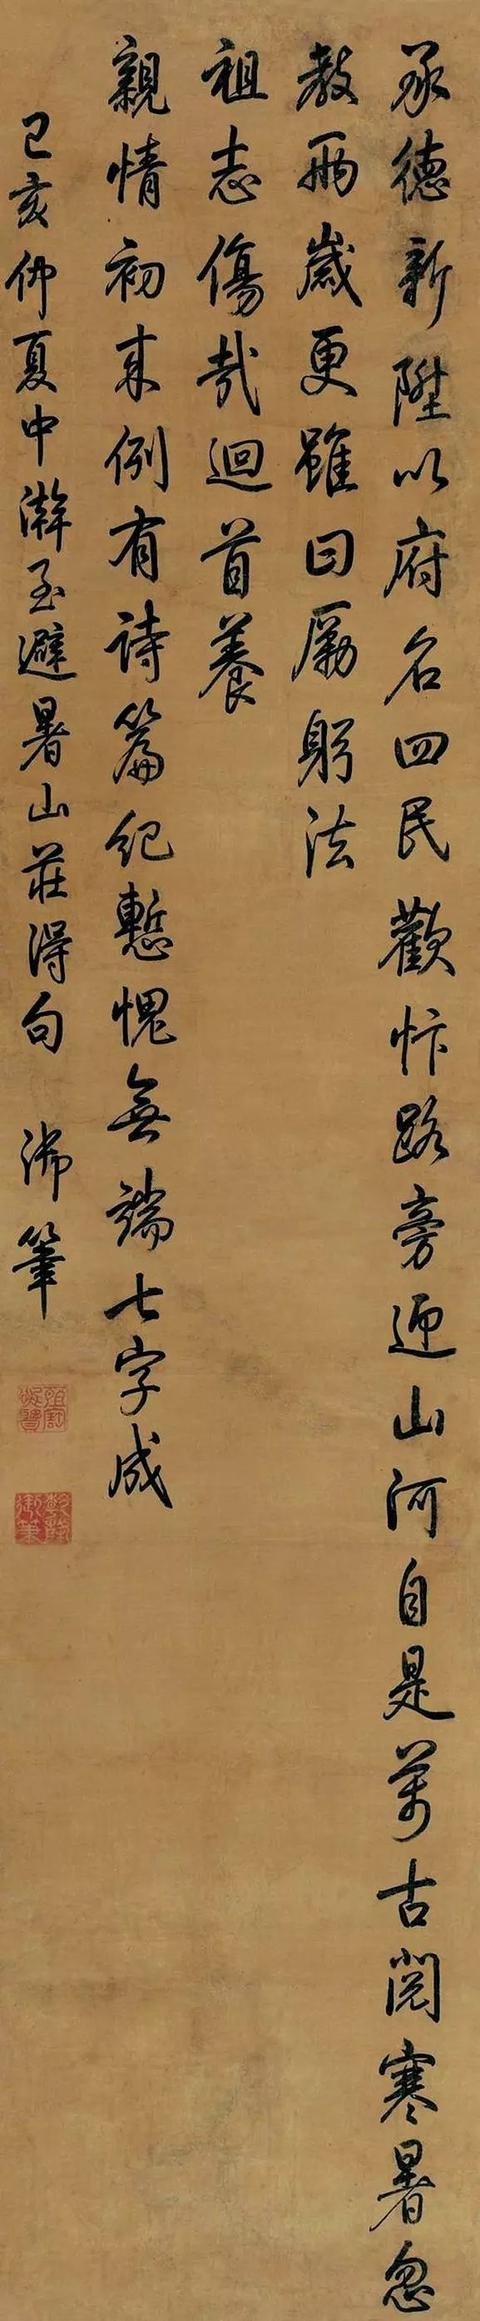 承德新陞以府名四民歡忭路旁迎山河自是萬古閱寒暑忽
教兩歲更雖曰勵躬法
祖志傷哉迴首養
親情初来例有詩篇紀慙愧無端七字成
己亥仲夏中澣至避暑山莊得句 御筆
乾隆御筆